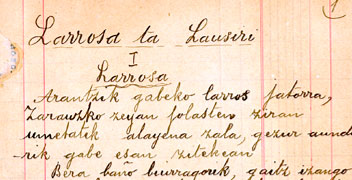 1
Larrosa ta Lausiri
I
Larrosa
Arantzik gabeko larros jatorra,
Zarauzko zeyan jolasten ziran
umetatik alayena zala, gezur aundi-
rik gabe esan zitekean
Bera baño biurragorik, gaitz izango